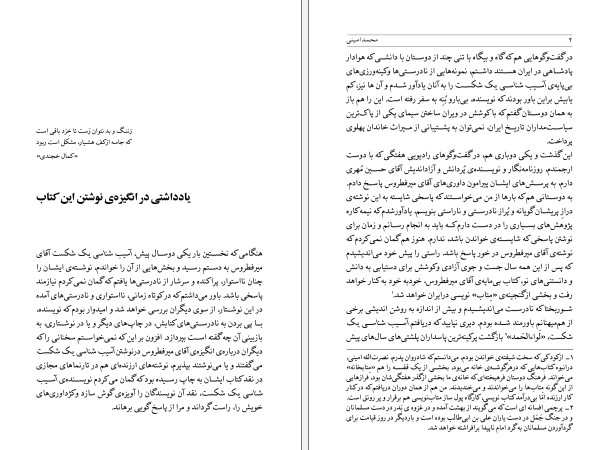 زننگ و بد نتوان رست تا خِرَد باقی است
که جامه ازکف هشیار، مشکل است ربود
«کمال خجندی»
یادداشتی در انگیزه‌ی نوشتن این کتاب
هنگامی که نخستین بار یکی دوسال پیش، آسیب شناسی یک شکست آقای
میرفطروس به دستم رسید و بخش‌هایی از آن را خواندم، نوشته‌ی ایشان را
چنان نااستوار، پراکنده و سرشار از نادرستی‌ها یافتم که گمان نمی‌کردم نیازمند
پاسخی باشد. باور می‌داشتم که درکوتاه زمانی، نااستواری و نادرستی‌های آمده
در این نوشتار، از سوی دیگران بررسی خواهد شد و امیدوار بودم که نویسنده،
با پی بردن به نادرستی‌های کتابش، در چاپ‌های دیگر و یا در نوشتاری، به
بازبینی آن چه گفته است بپردازد. افزون بر این که نمی‌خواستم سخنانی را که
دیگران درباره‌ی انگیزه‌ی آقای میرفطروس درنوشتن آسیب شناسی یک شکست
می‌گفتند و یا می‌نوشتند بپذیرم. نوشته‌های ارزنده‌ای هم در تارنماهای مجازی
در نقد کتاب ایشان به چاپ رسیده بود که گمان می کردم نویسنده‌ی آسیب
شناسی یک شکست، نقد آن نویسندگان را آویزه‌ی گوش سازد وکژداوری‌های
خویش را، راست گرداند و مرا از پاسخ‌گویی برهاند.
۲ محمد امینی
در گفت‌وگوهایی هم که گاه و بیگاه با تنی چند از دوستان با دانشی که هوادار
پادشاهی در ایران هستند داشتم، نمونه‌هایی از نادرستی‌ها وکینه‌ورزی‌های
بی‌پایه‌ی آسیب شناسی یک شکست را به آنان یادآور شدم و آن ها نیز، کم
یابیش براین باور بودند که نویسنده، بی‌بارو بُنِه به سفر رفته است. این را هم باز
به همان دوستان گفتم که با کوشش در ویران ساختن سیمای یکی از پاک‌ترین
سیاست‌مداران تاریخ ایران، نمی‌توان به پشتیبانی از میراث خاندان پهلوی
پرداخت.
این گذشت و یکی دوباری هم، در گفت‌وگوهای رادیویی هفتگی که با دوست
ارجمندم، روزنامه‌نگار و نویسنده‌ی پُردانش و آزاداندیش آقای حسین مُهری
دارم، به پرسش‌های ایشان پیرامون داوری‌های آقای میرفطروس پاسخ دادم.
به دوستانی هم که بارها از من می‌خواستند که پاسخی شایسته به این نوشته‌ی
دراز پریشان‌گویانه و پُراز نادرستی و ناراستی بنویسم، یادآورشدم که نیمه‌کاره
پژوهش‌های بسیاری را در دست دارم که باید به انجام رسانم و زمان برای
نوشتن پاسخی که شایسته‌ی خواندن باشد، ندارم. هنوز هم گمان نمی کردم که
نوشته‌ی آقای میرفطروس در خور پاسخ باشد. راستی را پیش خود می‌اندیشیدم
که پس از این همه سال جست و جوی آزادی وکوشش برای دستیابی به دانش
و دانستنی‌های نو، کتاب بی‌مایه‌ی آقای میرفطروس، خودبه خود به کنار خواهد
رفت و بخشی ازگنجینه‌ی «مثاب» نویسی درایران خواهد شد.¹
شوربختا که نادرست می‌اندیشیدم و بیش از اندازه به روشن اندیشی برخی
از هم‌میهنانم باورمند شده بودم. دیری نپایید که دریافتم آسیب شناسی یک
شکست، «لَواءالحَمدِ»² بازگشت پرکینه‌ترین پاسداران پلشتی‌های سال‌های پیش
۱ ـ ازکودکی که سخت شیفته‌ی خواندن بودم، می‌دانستم که شادروان پدرم، نصرت‌اله امینی،
درانبوه کتاب‌هایی که درهرگوشه‌ی خانه می‌بود، بخشی از یک قفسه را هم «مثابخانه»
می‌خواند. فرهنگ دوستان فرهیخته‌ای که خانه‌ی ما بخشی ازگذر هفتگی‌شان بود، فرازهایی
از این گونه مثاب‌ها را می‌خواندند و می‌خندیدند. من هم از همان دوران دریافتم که در کنار
کار ارزنده امّا بی‌درآمد کتاب نویسی، کارگاه پول ساز مثاب‌نویسی هم برقرار و پر رونق است.
۲ ـ پرچمی افسانه ای است که می‌گویند از بهشت آمده و در غزوه ی بَدر در دست مسلمانان
و در جنگ جَمَل در دست یاران علی بن ابی‌طالب بوده است و باردیگر در روز قیامت برای
گردآوردن مسلمانان به‌گرد امام ناپیدا برافراشته خواهد شد.